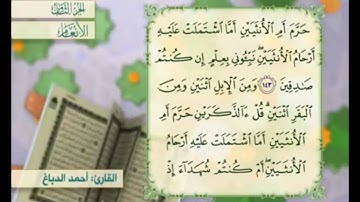 الجزء الثامن
الأنعام
حَرَّمَ أَمِ ٱلْأُنثَيَيْنِ أَمَّا ٱشْتَمَلَتْ عَلَيْهِ
أَرْحَامُ ٱلْأُنثَيَيْنِ ۖ نَبِّـُٔونِى بِعِلْمٍ إِن كُنتُمْ
صَـٰدِقِينَ ١٤٣ وَمِنَ ٱلْإِبِلِ ٱثْنَيْنِ وَمِنَ
ٱلْبَقَرِ ٱثْنَيْنِ ۗ قُلْ ءَآلذَّكَرَيْنِ حَرَّمَ أَمِ
ٱلْأُنثَيَيْنِ أَمَّا ٱشْتَمَلَتْ عَلَيْهِ أَرْحَامُ
ٱلْأُنثَيَيْنِ ۖ أَمْ كُنتُمْ شُهَدَآءَ إِذْ
القارئ: أحمد الدباغ